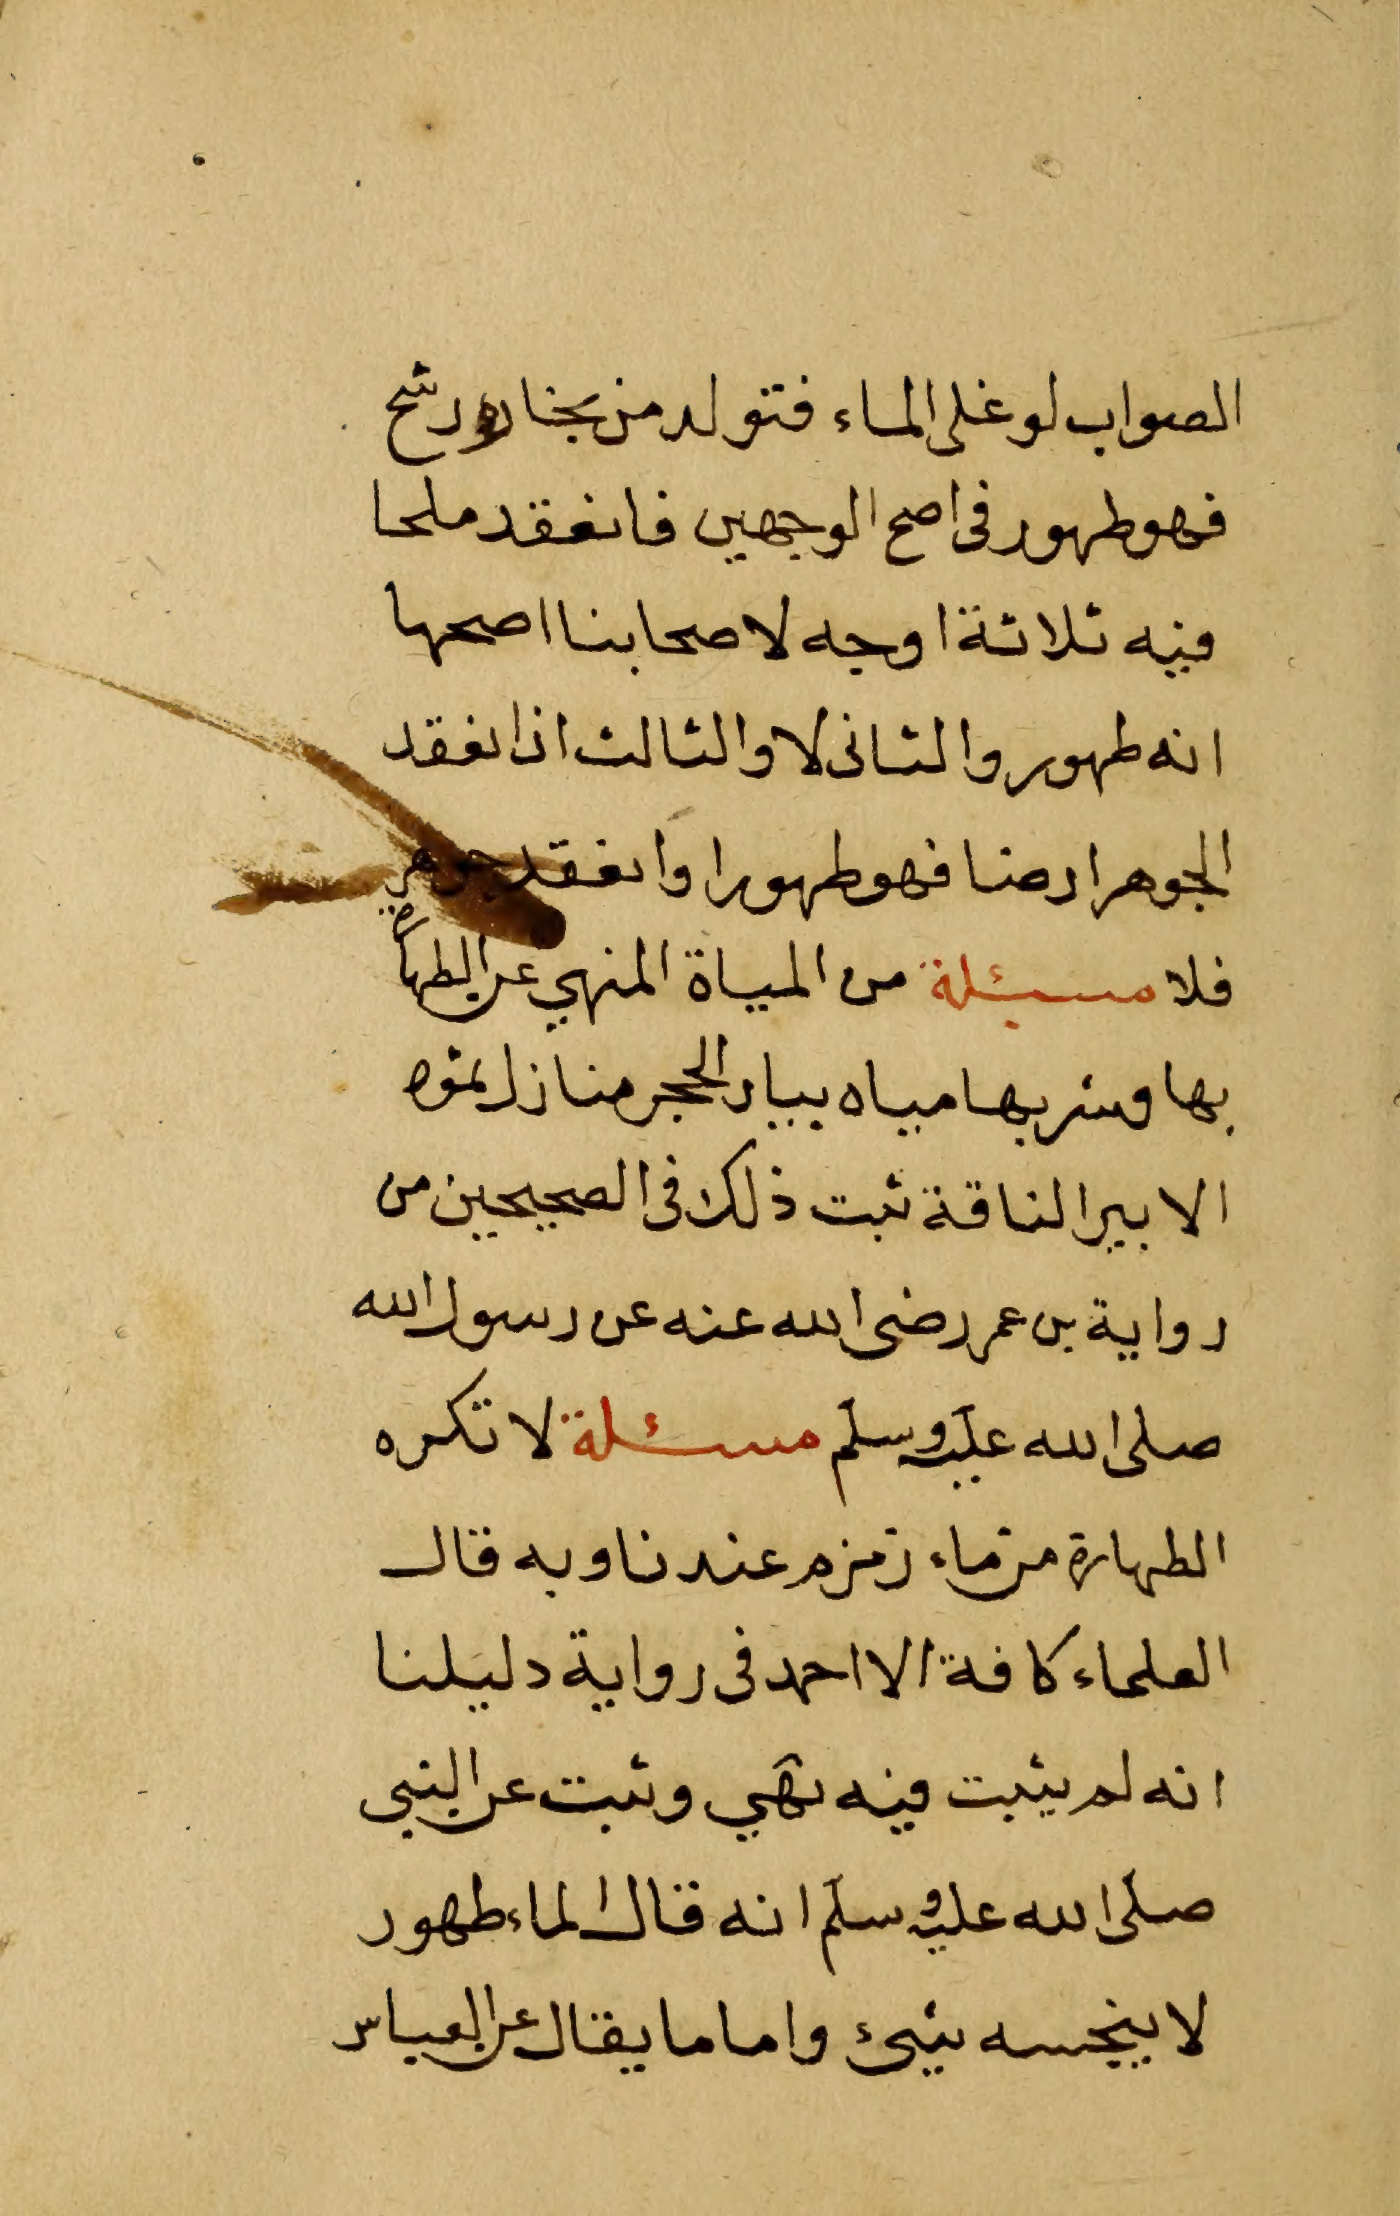 الصواب لو غلى الماء فتولد من بخاره رشح
فهو طهور فى اصح الوجهين فانعقد ملحا
فيه ثلاثة اوجه لاصحابنا اصحها
انه طهور والثانى لا والثالث اذا نعقد
الجوهر ارضا فهو طهورا وانعقد جوهر
فلا مسئلة من المياة المنهي عن الطهارة
بها وشربها مياه بيار الحجر منازل ثموه
الا بير الناقة ثبت ذلك فى الصحيحين من
رواية بن عمر رضى الله عنه عن رسول الله
صلى الله عليه وسلم مسئلة لا تكره
الطهارة من ماء زمزم عندنا وبه قال
العلماء كافة الا احمد فى رواية دليلنا
انه لم يثبت فيه نهي وثبت عن النبي
صلى الله عليه وسلم انه قال الماء طهور
لا ينجسه شيئ واما ما يقال عن العباس